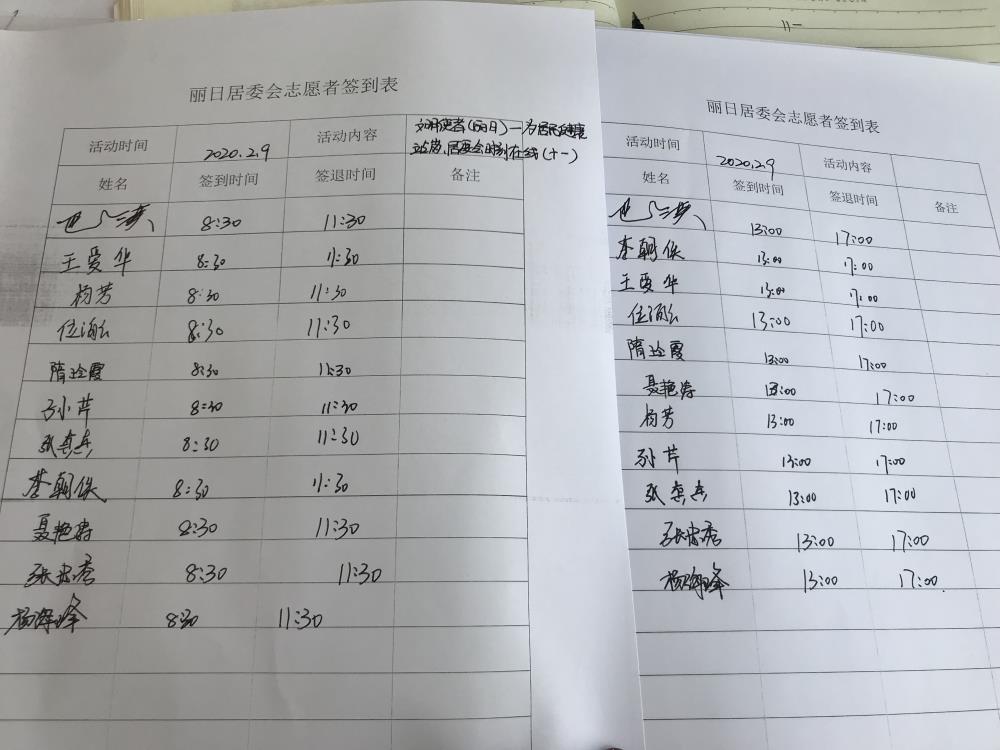 丽日居委会志愿者签到表
活动时间 2020.2.9 活动内容 文明使者(丽日)—为居民健康
站岗、居委会时刻在线(十一)
姓名 签到时间 签退时间 备注
8:30 11:30
王爱华 8:30 11:30
杨芳 8:30 11:30
位 8:30 11:30
隋玲霞 8:30 11:30
孙小芹 8:30 11:30
张 8:30 11:30
李朝侠 8:30 11:30
聂艳涛 8:30 11:30
张忠秀 8:30 11:30
杨海峰 8:30 11:30
丽日居委会志愿者签到表
活动时间 2020.2.9 活动内容
姓名 签到时间 签退时间 备注
13:00 17:00
李朝侠 13:00 17:00
王爱华 13:00 17:00
位 13:00 17:00
隋玲霞 13:00 17:00
聂艳涛 13:00 17:00
杨芳 13:00 17:00
孙芹 13:00 17:00
张 13:00 17:00
张忠秀 13:00 17:00
杨海峰 13:00 17:00